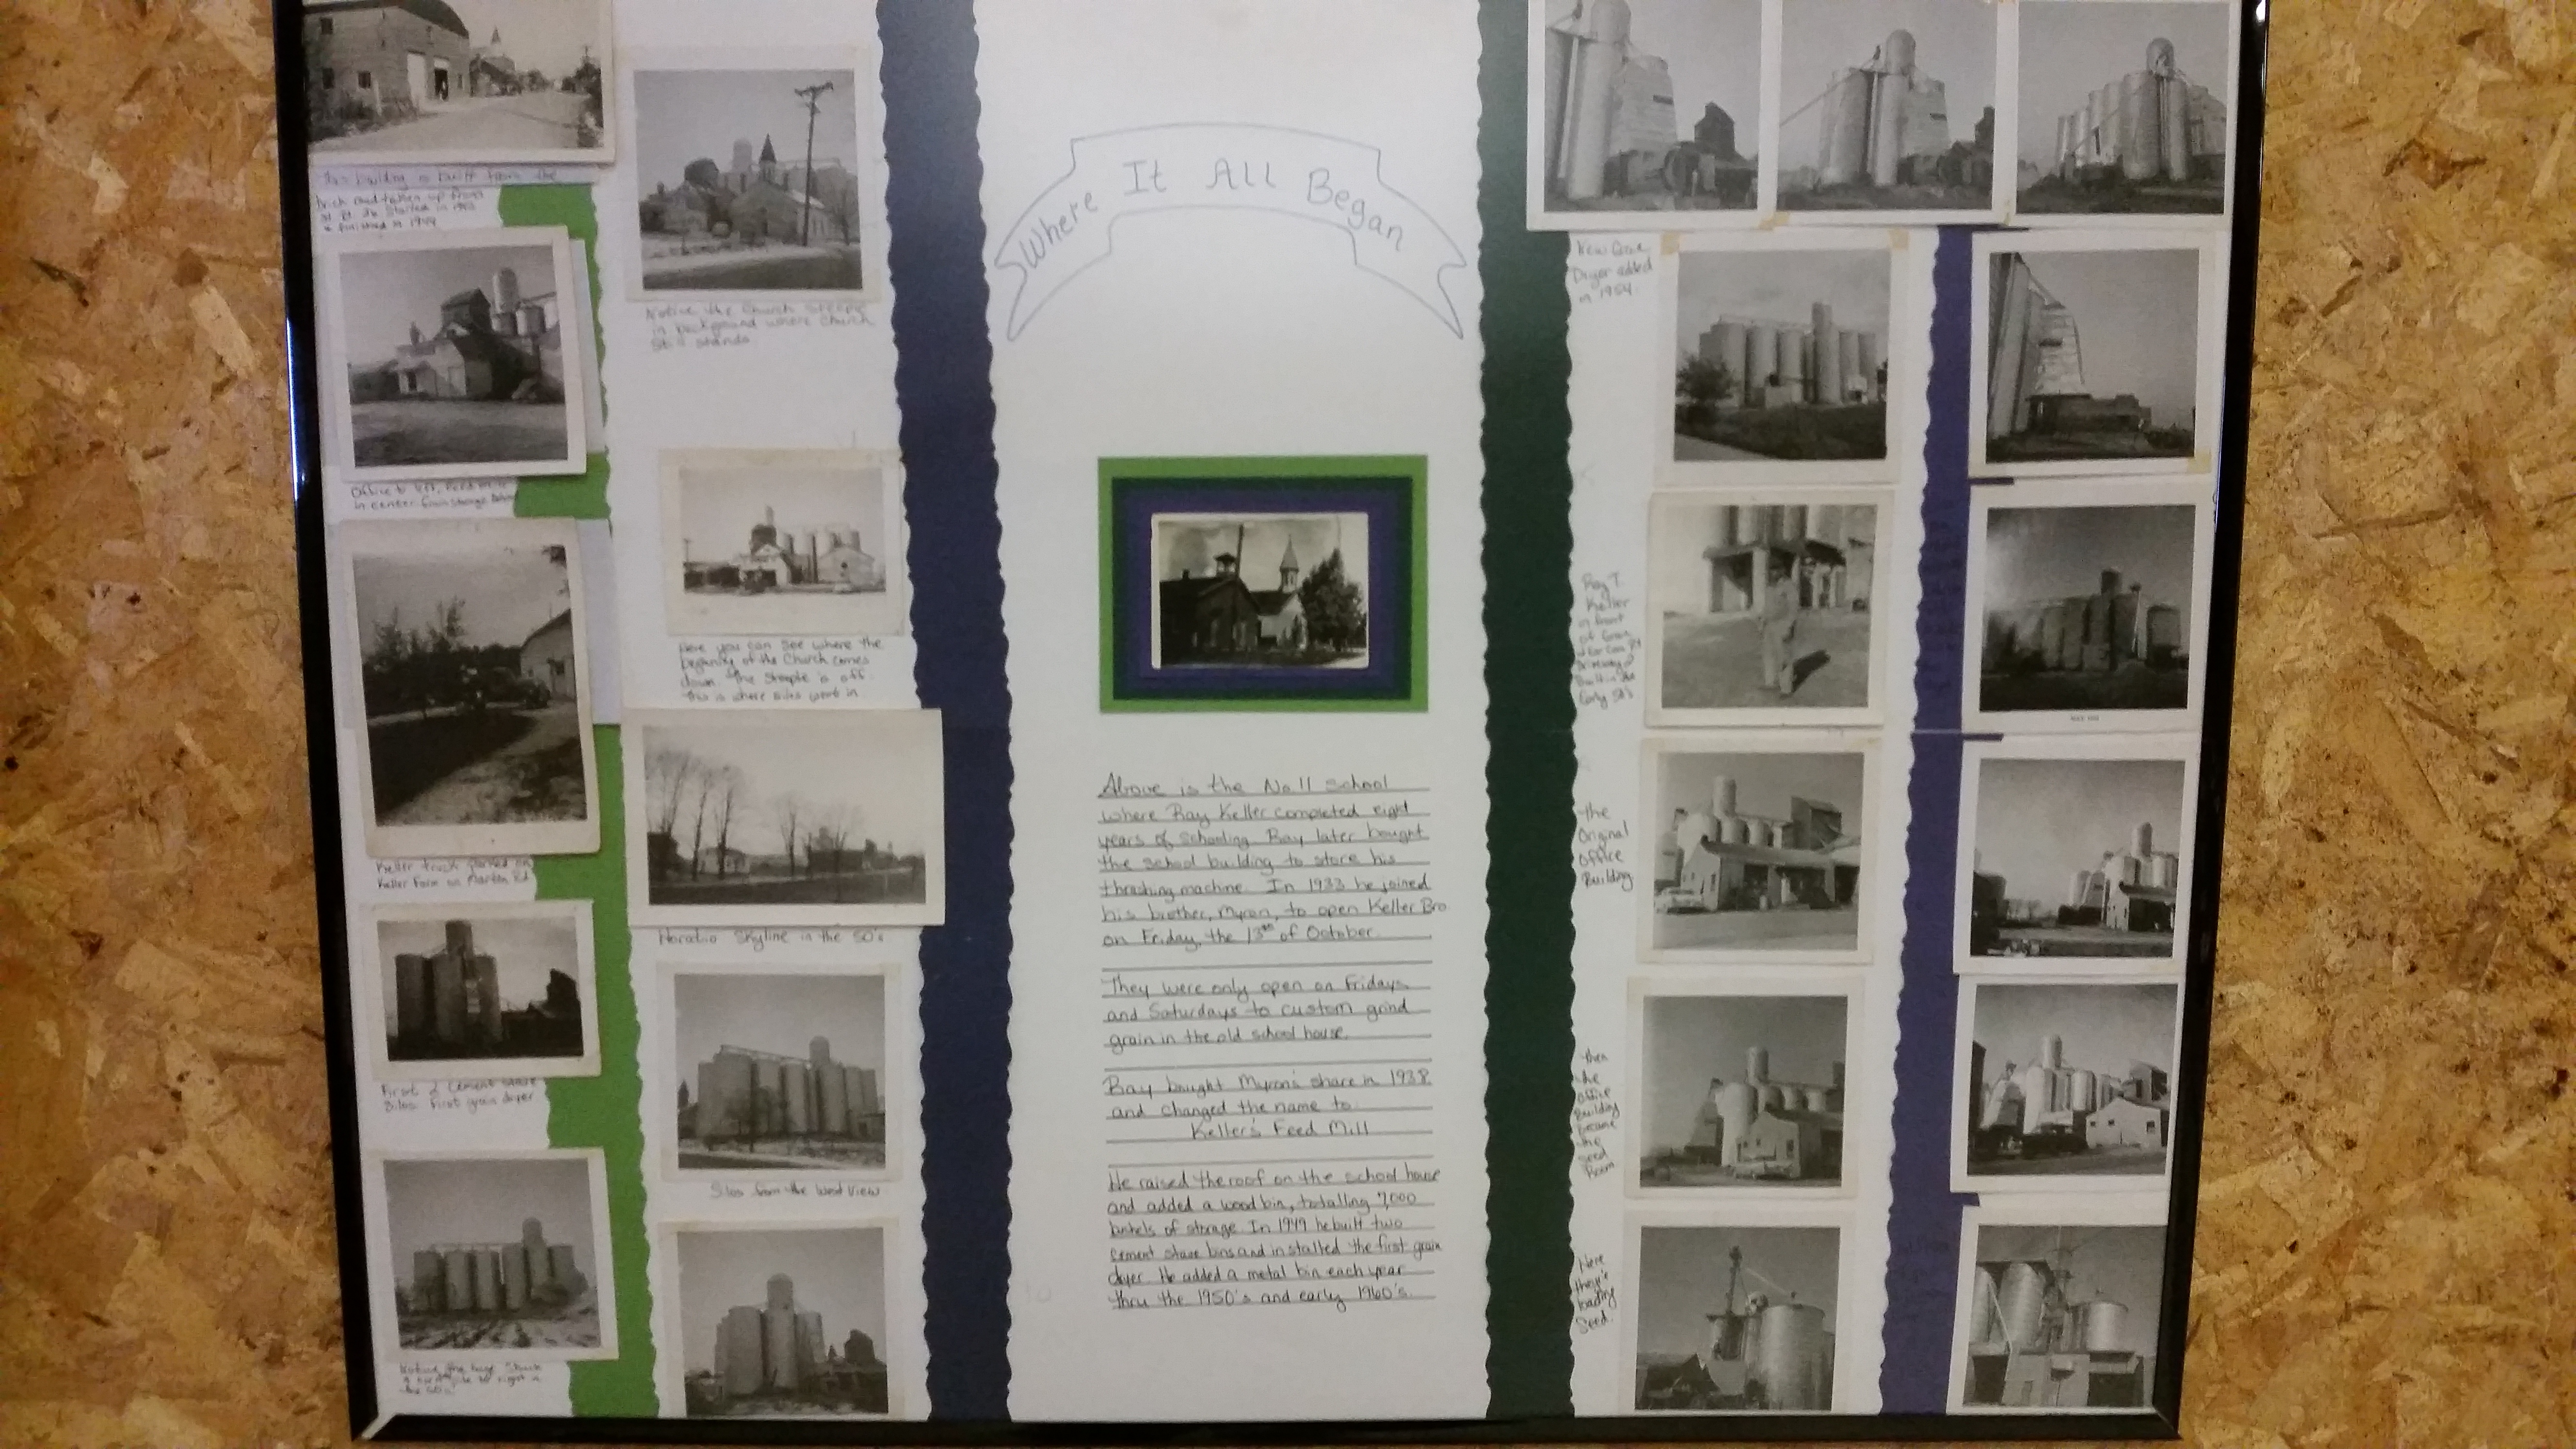 This building is built from the
brick road taken up from
started in
& finished in 1944
Office to left, Feed mill
in center Grain storage behind
Keller truck parked on
Keller Farm on Marton Rd
First 2 Cement stave
Silos. First grain dryer
Notice the huge
to right in
the 60's
Notice the Church Steeple
in background where Church
Still stands.
Here you can see where the
beginning of the Church comes
down. The Steeple is off.
This is where silos went in
Horatio Skyline in the 50's
Silos from the West View
Where It All Began
Above is the No 11 school
where Ray Keller completed eight
years of schooling. Ray later bought
the school building to store his
thrashing machine. In 1933 he joined
his brother, Myron, to open Keller Bro
on Friday, the 13th of October.
They were only open on Fridays
and Saturdays to custom grind
grain in the old school house.
Ray bought Myron's share in 1938
and changed the name to:
Keller's Feed Mill
He raised the roof on the school house
and added a wood bin, totalling 7,000
bushels of storage. In 1949 he built two
cement stave bins and installed the first grain
dryer. He added a metal bin each year
thru the 1950's and early 1960's.
New
Dryer added
in 1954.
Ray T.
Keller
in front
of Grain
Built in the
Early 50's
the
Original
Office
Building
then
the
office
Building
became
the
seed
Room
Here
they're
loading
Seed.